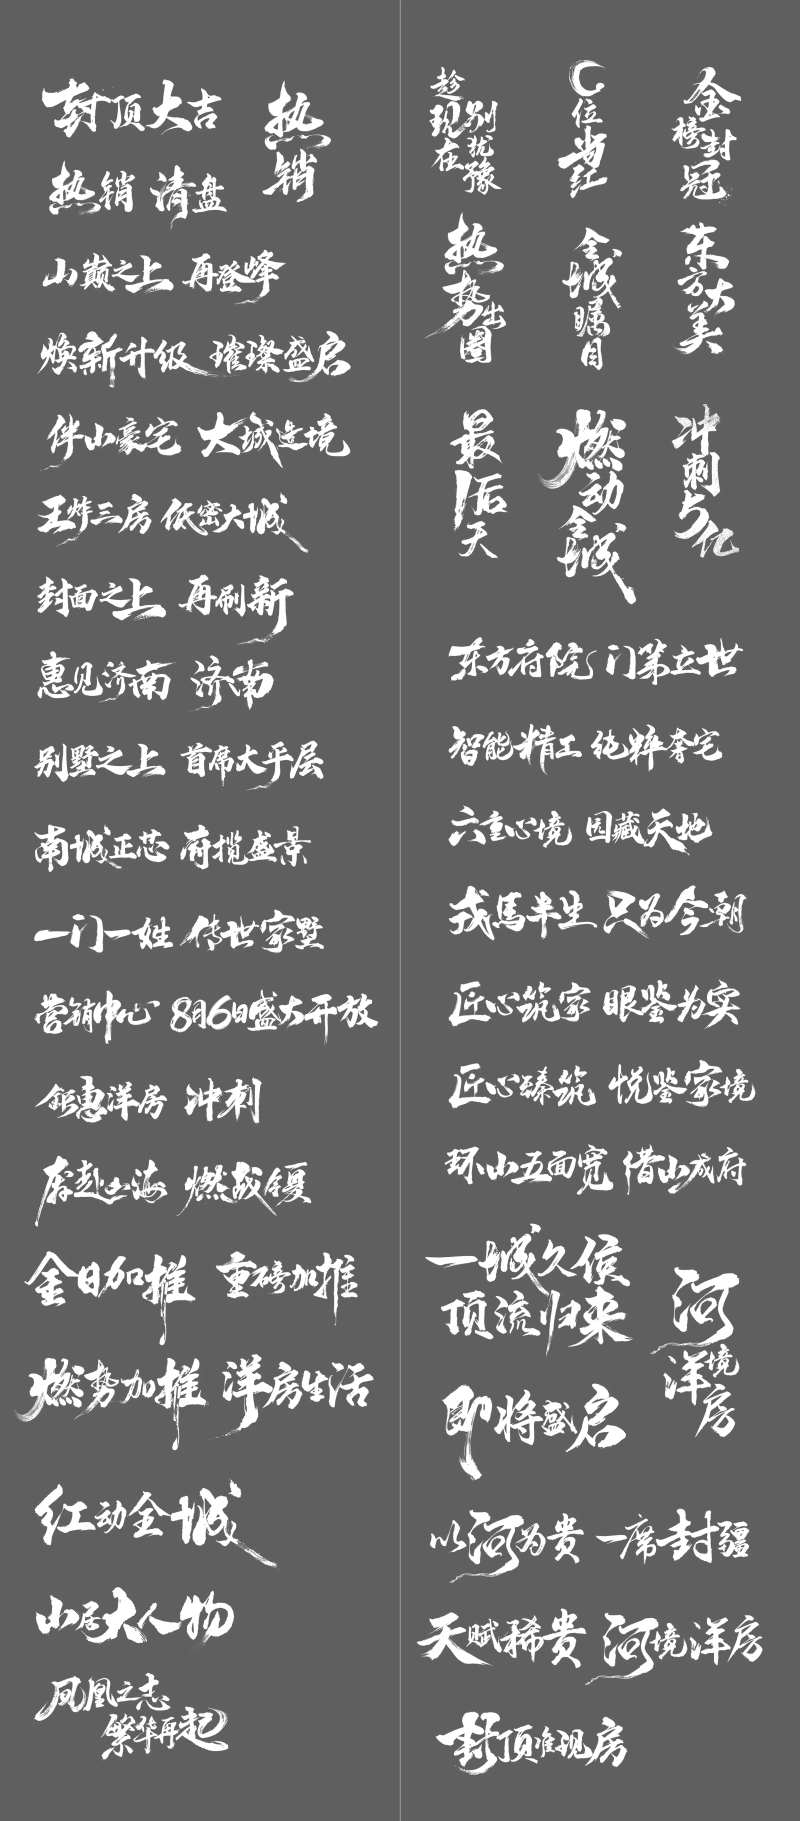 封顶大吉
热销
热销 清盘
山巅之上 再登峰
焕新升级 璀璨盛启
伴山豪宅 大城造境
王炸三房 低密大城
封面之上 再刷新
惠见济南 济南
别墅之上 首席大平层
南城正芯 府揽盛景
一门一姓 传世家墅
营销中心 8月6日盛大开放
钜惠洋房 冲刺
齐赴山海 燃战今夏
金日加推 重磅加推
燃势加推 洋房生活
红动全城
山居大人物
凤凰之志
繁华再起
趁现在
别犹豫
C位当红
金榜封冠
热势出圈
全城瞩目
东方大美
最后1天
燃动全城
冲刺5亿
东方府院 门第立世
智能精工 纯粹奢宅
六重心境 园藏天地
戎馬半生 只为今朝
匠心筑家 眼鉴为实
匠心臻筑 悦鉴家境
环山五面宽 借山成府
一城久候
顶流归来
河境洋房
即将盛启
以河为贵 一席封疆
天赋稀贵 河境洋房
封顶准现房